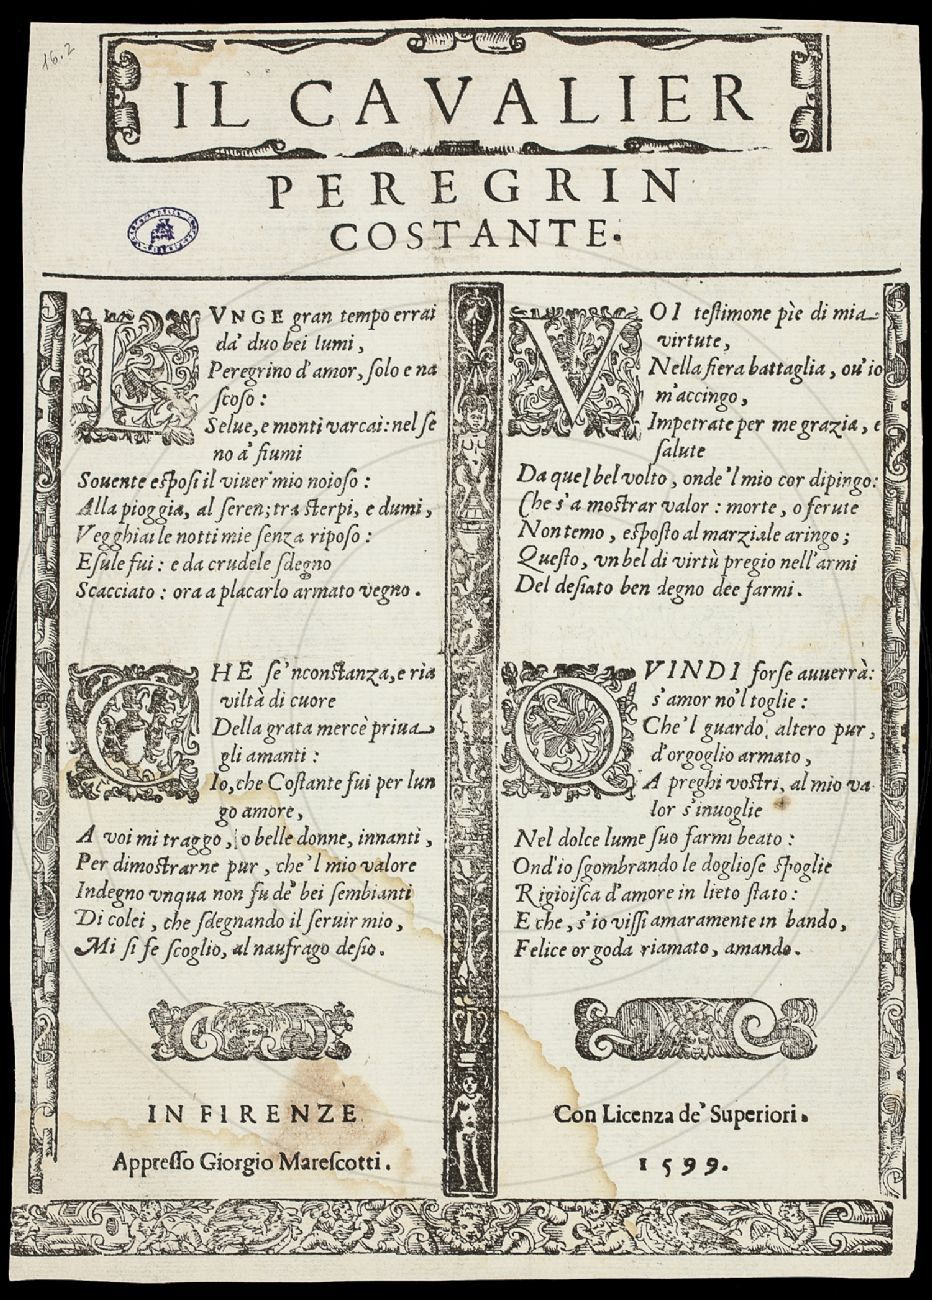 16.2
IL CAVALIER
PEREGRIN
COSTANTE.
LVNGE gran tempo errai
da' duo bei lumi,
Peregrino d'amor, ſolo e na
ſcoſo:
Selue, e monti varcai: nel ſe
no à fiumi
Souente eſpoſi il viuer' mio noioſo:
Alla pioggia, al ſeren; tra ſterpi, e dumi,
Vegghiai le notti mie ſenza ripoſo:
Eſule fui: e da crudele ſdegno
Scacciato: ora a placarlo armato vegno.
CHE ſe'nconſtanza, e ria
viltà di cuore
Della grata mercè priua
gli amanti:
Io, che Coſtante fui per lun
go amore,
A voi mi traggo, o belle donne, innanti,
Per dimoſtrarne pur, che'l mio valore
Indegno vnqua non fu de' bei ſembianti
Di colei, che ſdegnando il ſeruir mio,
Mi ſi fe ſcoglio, al naufrago deſio.
VOI teſtimone piè di mia
virtute,
Nella fiera battaglia, ou' io
m'accingo,
Impetrate per me grazia, e
ſalute
Da quel bel volto, onde'l mio cor dipingo:
Che s'a moſtrar valor: morte, o ferute
Non temo, eſpoſto al marziale aringo;
Queſto, vn bel di virtù pregio nell'armi
Del deſiato ben degno dee farmi.
QVINDI forſe auuerrà:
s'amor no'l toglie:
Che'l guardo, altero pur,
d'orgoglio armato,
A preghi voſtri, al mio va
lor s'inuoglie
Nel dolce lume ſuo farmi beato:
Ond'io ſgombrando le doglioſe ſpoglie
Rigioiſca d'amore in lieto ſtato:
E che, s'io viſſi amaramente in bando,
Felice or goda riamato, amando.
IN FIRENZE
Appreſſo Giorgio Mareſcotti.
Con Licenza de' Superiori.
1599.